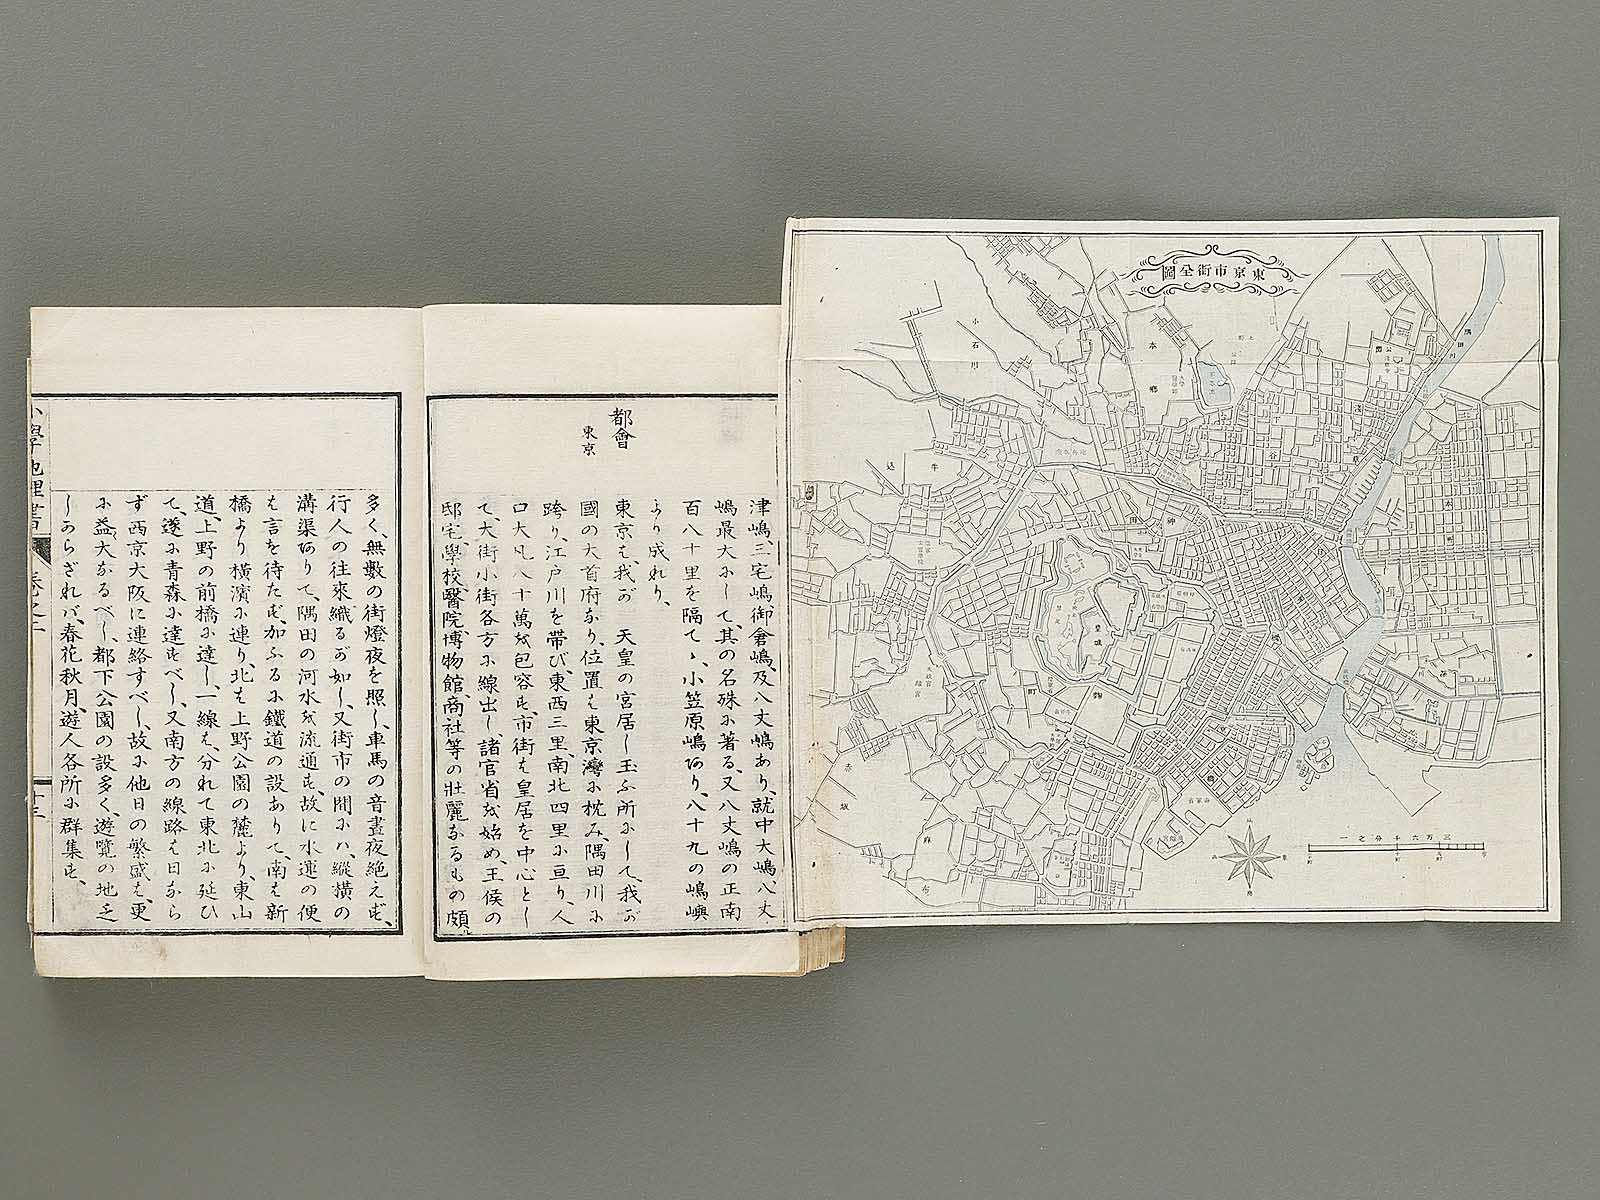 東京市街全圖
隅田川
小石川
本鄉
下谷
淺草
牛込
神田
本所
皇城
麹町
日本橋
京橋
深川
芝
赤坂
麻布
三万六千分之一
都會
東京
津嶋、三宅嶋、御倉嶋、及八丈嶋あり、就中大嶋、八丈
嶋最大にして、其の名殊に著る、又八丈嶋の正南
百八十里を隔てヽ、小笠原嶋あり、八十九の嶋嶼
より成れり、
東京は、我が 天皇の宮居し玉ふ所にして、我が
國の大首府なり、位置は東京灣に枕み、隅田川に
跨り、江戸川を帶び、東西三里、南北四里に亘り、人
口大凡八十萬を包容す、市街は皇居を中心とし
て、大街小街各方に線出し、諸官省を始め、王侯の
邸宅、學校、醫院、博物館、商社等の壯麗なるもの頗ル
多く、無數の街燈夜を照し、車馬の音晝夜絶えず、
行人の往來織るが如し、又街市の間には、縱橫の
溝渠ありて、隅田の河水を流通す、故に水運の便
は言を待たず、加ふるに鐵道の設ありて、南は新
橋より橫濱に連り、北は上野公園の麓より、東山
道、上野の前橋に達し、一線は、分れて東北に延ひ
て、遂に青森に達すべし、又南方の線路は日ならず
ず西京大阪に連絡すべし、故に他日の繁盛は、更
に益大なるべし、都下公園の設多く、遊覽の地乏
しからざれバ、春花秋月、遊人各所に群集す、
小學地理書
卷之二
十三